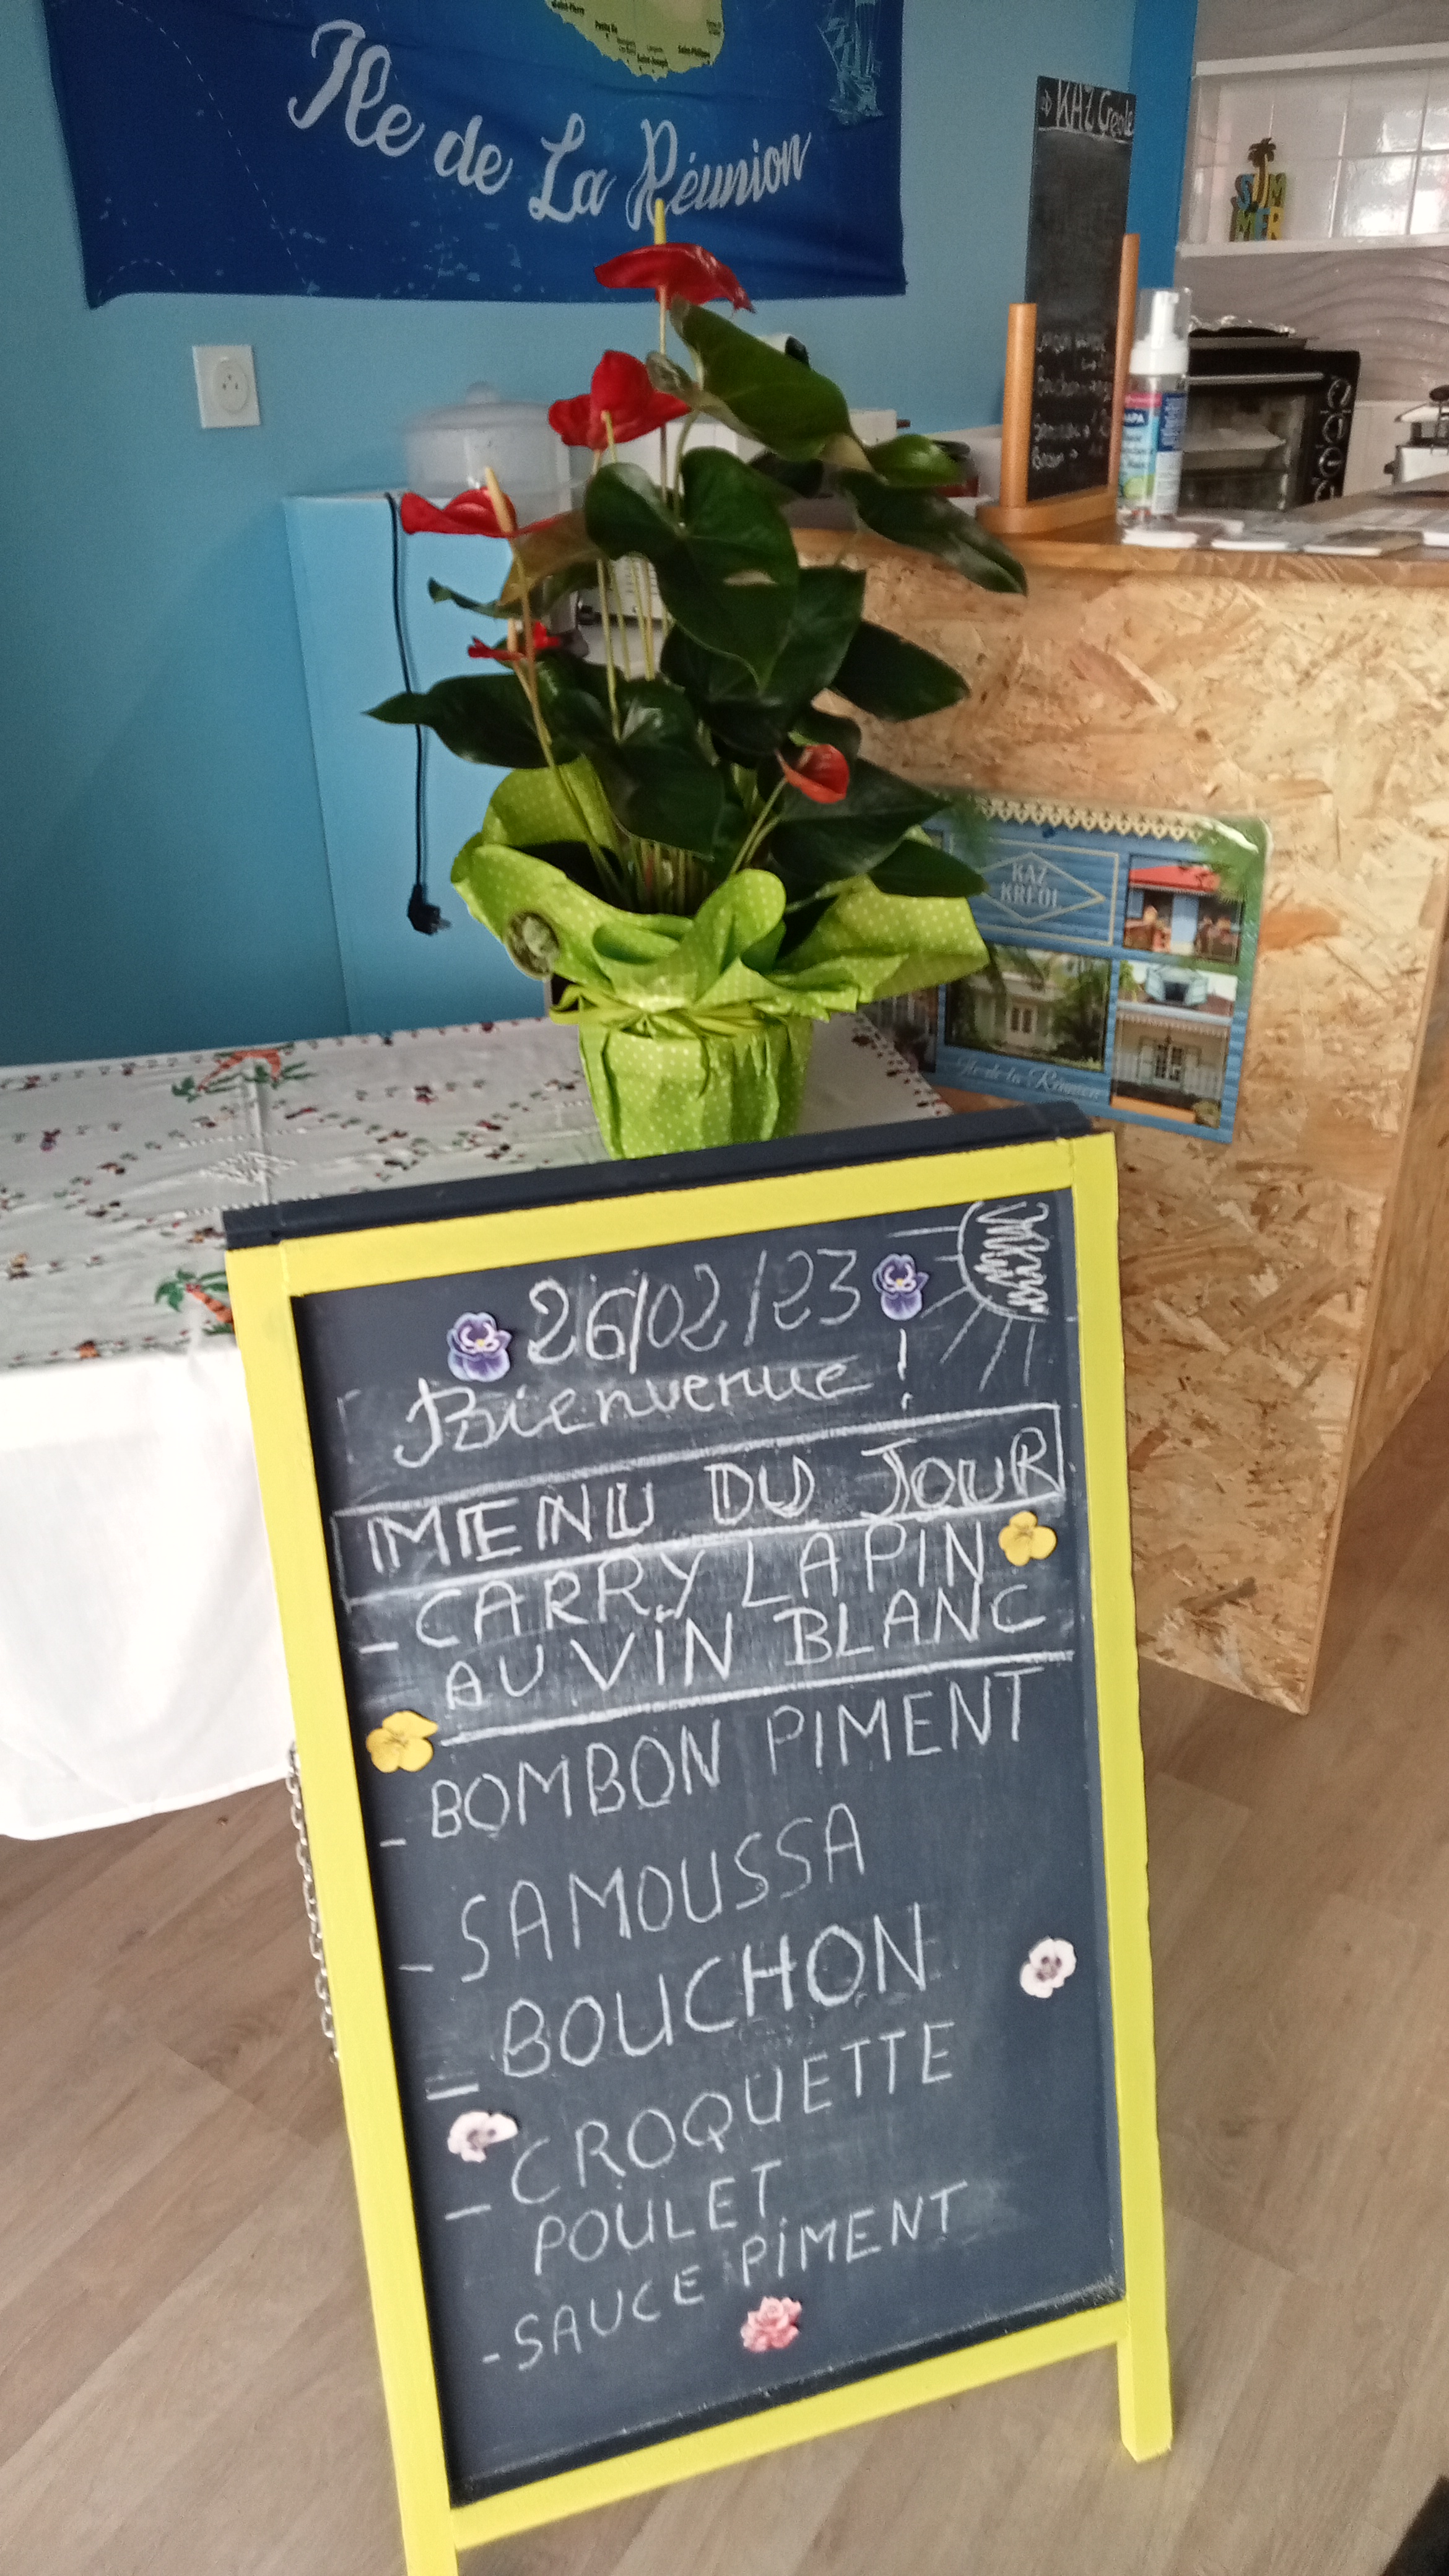 Saint-Pierre
Petite Ile
Saint-Joseph
Saint-Philippe
Ile de La Réunion
KAZ Creole
SUM
MER
KAZ
KREOL
Ile de la Réunion
26/02/23
Bienvenue !
MENU DU JOUR
- CARRY LAPIN
AU VIN BLANC
- BOMBON PIMENT
- SAMOUSSA
- BOUCHON
- CROQUETTE
POULET
- SAUCE PIMENT